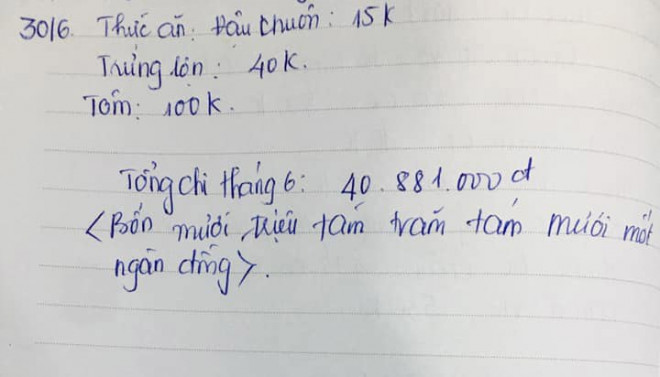 30/6. Thức ăn: Đầu chuồn: 15k
Trứng lộn: 40k.
Tôm: 100k.
Tổng chi tháng 6: 40.881.000đ
<Bốn mươi triệu tám trăm tám mươi mốt
ngàn đồng>.